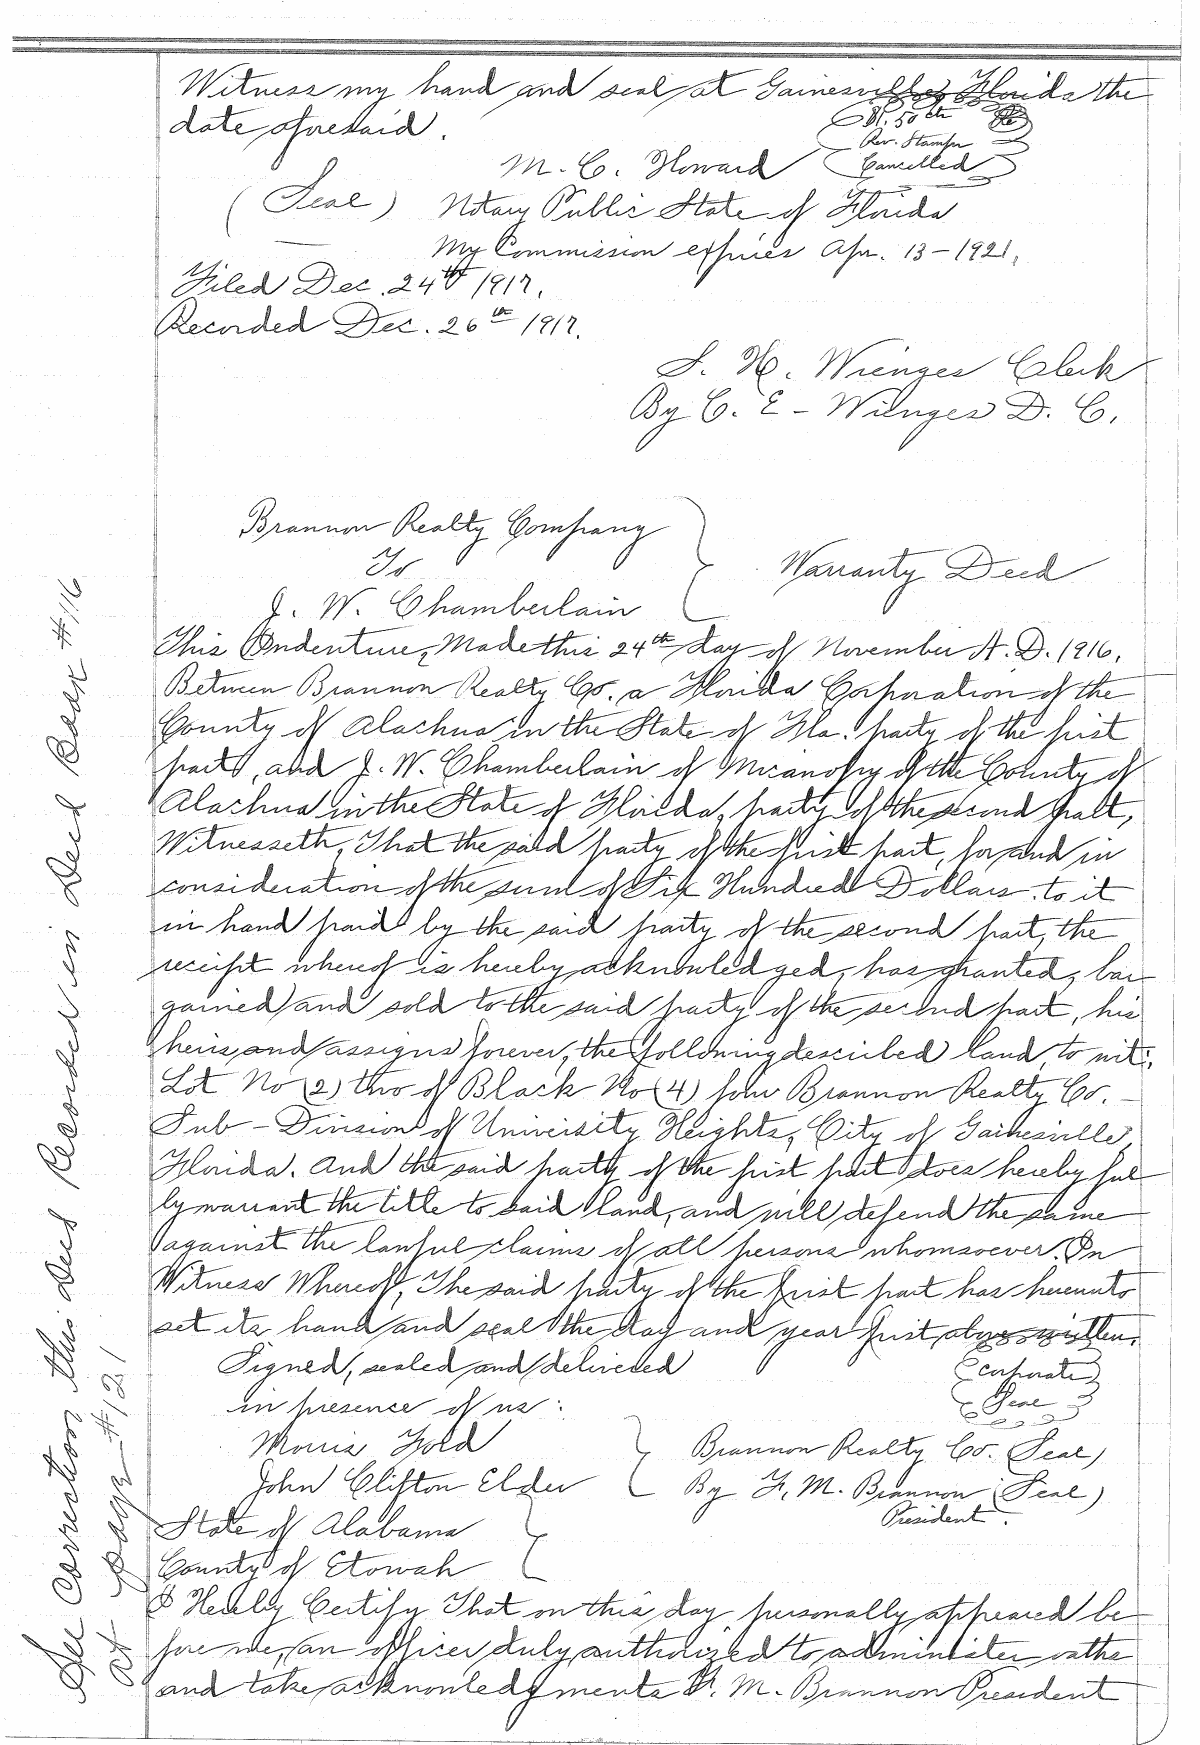 Witness my hand and seal at Gainesville, Florida the
date aforesaid.
$1.50 cts
Rev. Stamps
Cancelled
M. C. Howard
(Seal) Notary Public State of Florida
My Commission expires Apr. 13-1921.
Filed Dec. 24th 1917.
Recorded Dec. 26th 1917.
S. H. Wienges Clerk
By C. E- Wienges D. C.
Brannon Realty Company
To
J. W. Chamberlain
Warranty Deed
This Indenture, Made this 24th day of November A. D. 1916,
Between Brannon Realty Co. a Florida Corporation of the
County of Alachua in the State of Fla. party of the first
part, and J. W. Chamberlain of Micanopy of the County of
Alachua in the State of Florida, party of the second part,
Witnesseth, That the said party of the first part, for and in
consideration of the sum of Six Hundred Dollars to it
in hand paid by the said party of the second part, the
receipt whereof is hereby acknowledged, has granted, bar-
gained and sold to the said party of the second part, his
heirs and assigns forever, the following described land, to wit:
Lot No (2) two of Block No (4) four Brannon Realty Co.-
Sub-Division of University Heights, City of Gainesville,
Florida. And the said party of the first part does hereby ful-
ly warrant the title to said land, and will defend the same
against the lawful claims of all persons whomsoever. In
Witness Whereof, The said party of the first part has hereunto
set its hand and seal the day and year first above written.
Signed, sealed and delivered
in presence of us:
corporate
Seal
Morris Ford
John Clifton Elder
Brannon Realty Co. (Seal)
By F. M. Brannon (Seal)
President.
State of Alabama
County of Etowah
I Hereby Certify That on this day personally appeared be-
fore me, an officer duly authorized to administer oaths
and take acknowledgments F. M. Brannon President
See Correction this Deed Recorded in Deed Book #116
at page #121